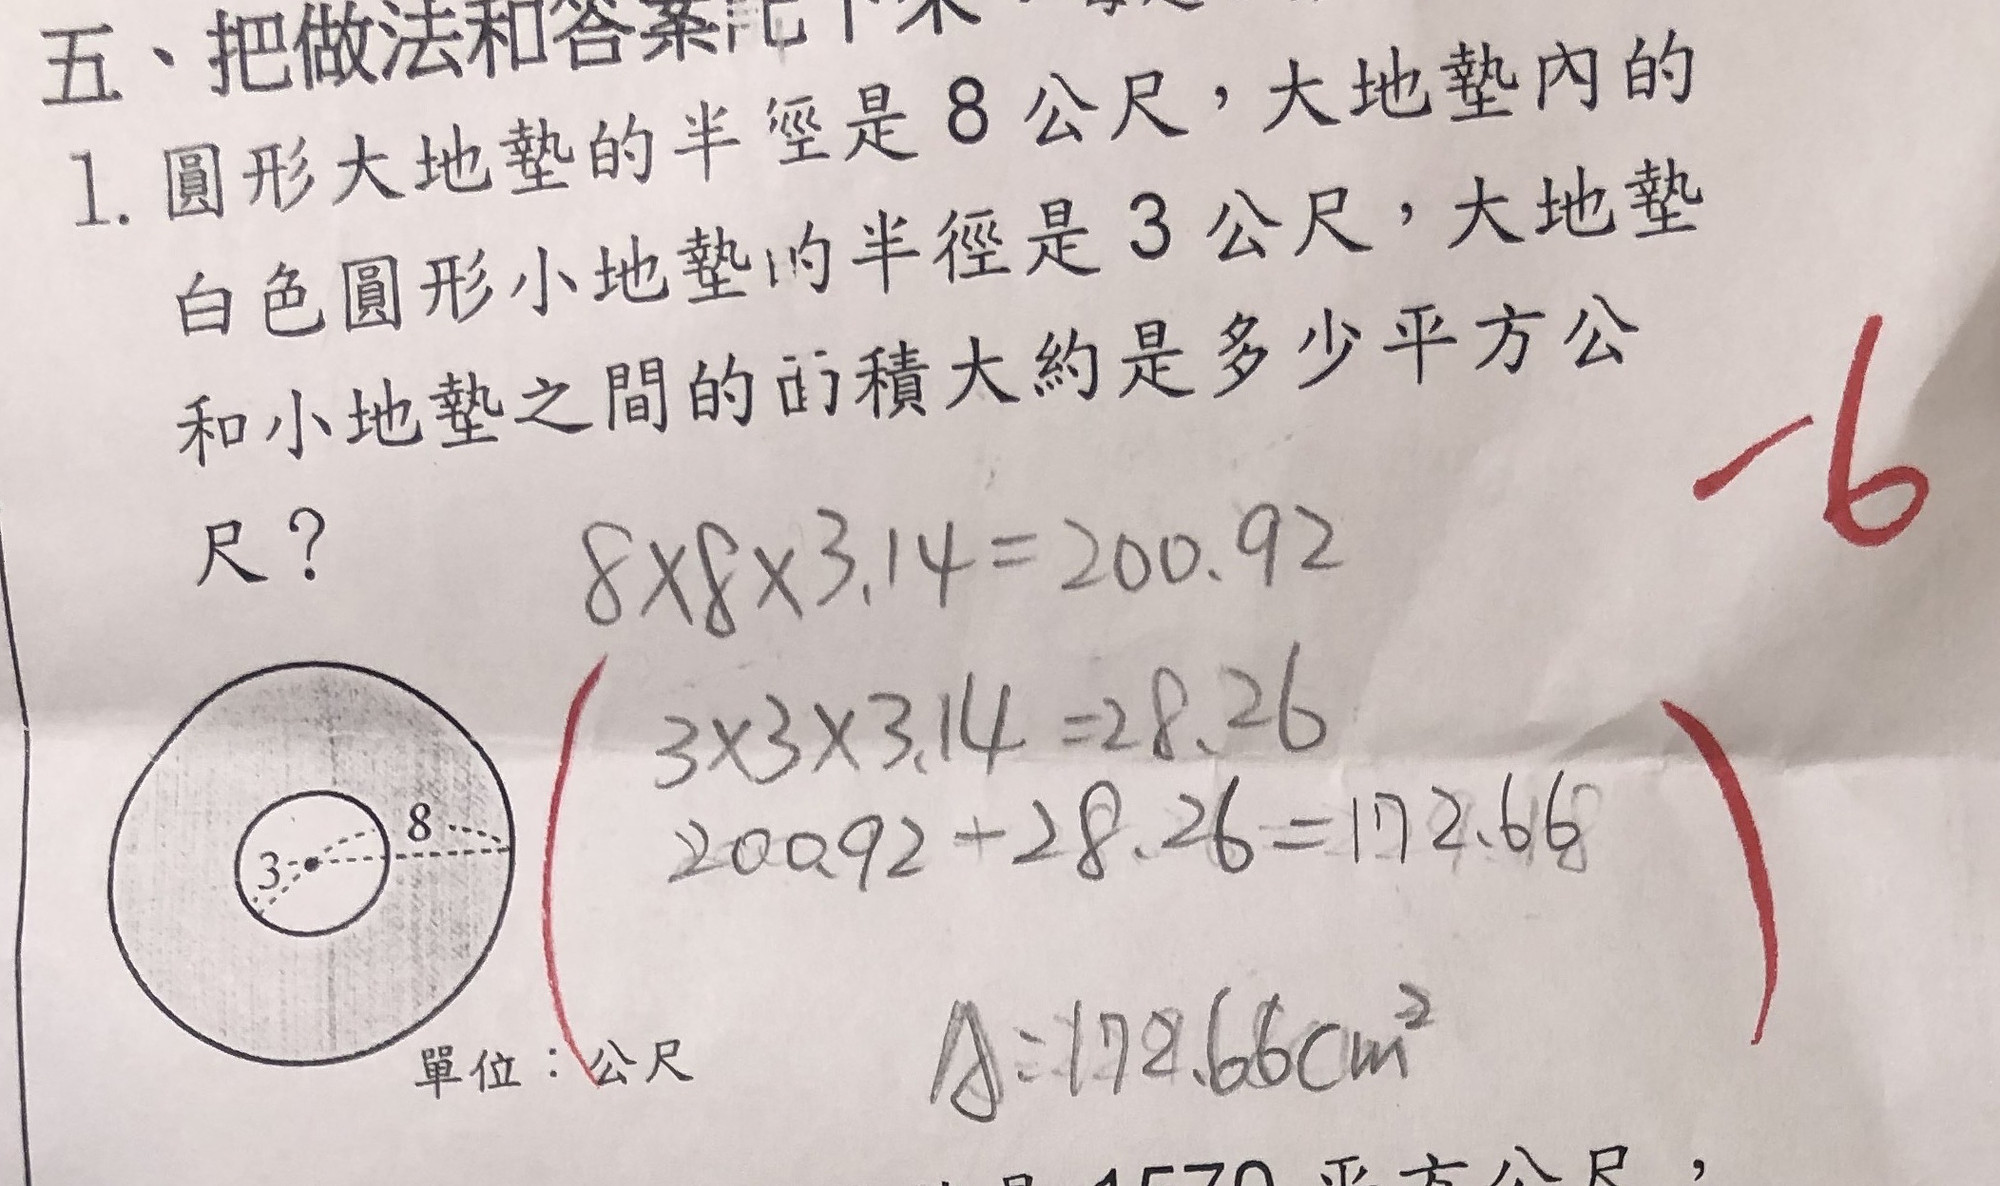 五、把做法和答案記下來
1. 圓形大地墊的半徑是 8 公尺，大地墊內的
白色圓形小地墊的半徑是 3 公尺，大地墊
和小地墊之間的面積大約是多少平方公
尺？
8×8×3.14=200.92
-6
3×3×3.14=28.26
200.92-28.26=172.66
3
8
單位：公尺
A:172.66cm²
1570 平方公尺，